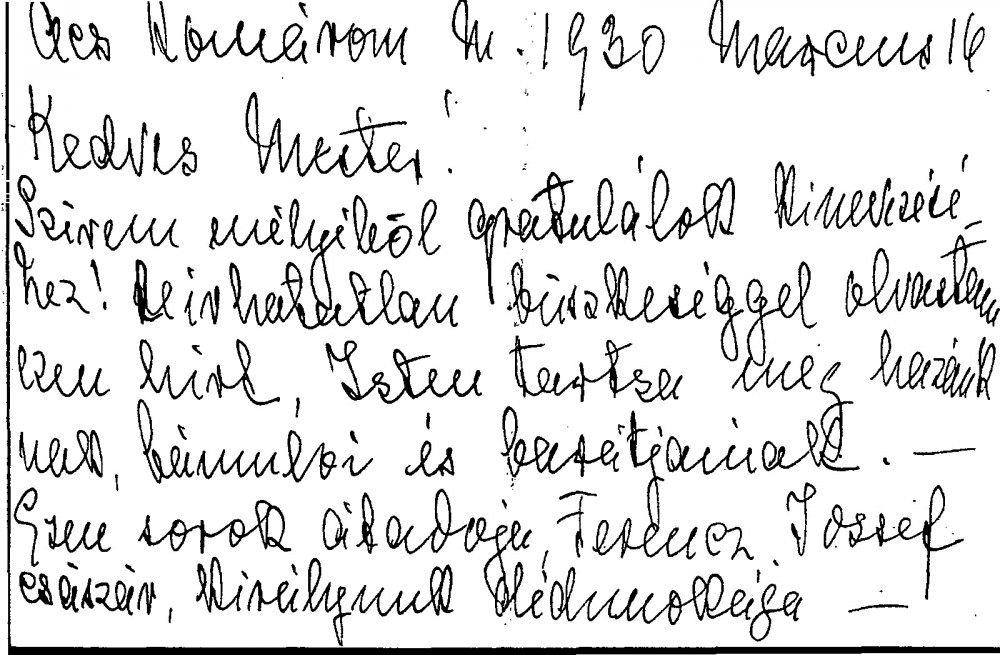 Ács Komárom M. 1930 Marcius 16
Kedves Mester!
Szivem mélyiből gratulálok Kinevezésé-
hez! Leirhatatlan büszkeséggel olvastam
ezen hirt, Isten tartsa meg hazánk
nak, bámulói és barátjainak. —
Ezen sorok átadója, Ferencz József
császár, Királyunk dédunokája —